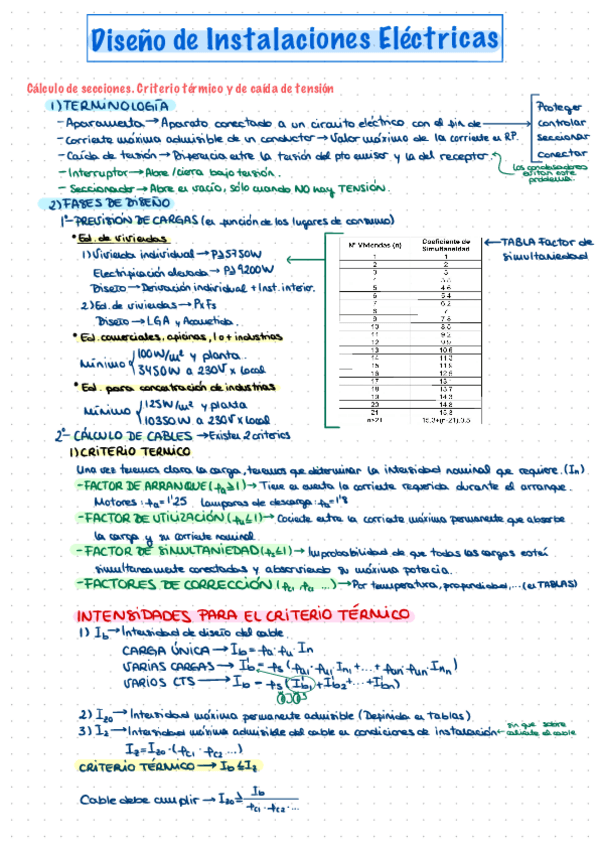 Diseño de Instalaciones Eléctricas
Cálculo de secciones. Criterio térmico y de caída de tensión
1) TERMINOLOGÍA
- Aparamenta → Aparato conectado a un circuito eléctrico con el fin de →
Proteger
controlar
seccionar
conectar
- Corriente máxima admisible de un conductor → Valor máximo de la corriente en R.P.
- Caída de tensión → Diferencia entre la tensión del pto emisor y la del receptor.
Los condensadores evitan este problema.
- Interruptor → Abre/cierra bajo tensión.
- Seccionador → Abre en vacío, sólo cuando NO hay TENSIÓN.
2) FASES DE DISEÑO
1º- PREVISIÓN DE CARGAS (en función de los lugares de consumo)
* Ed. de viviendas
1) Vivienda individual → P≥5750W
Electrificación elevada → P≥9200W
Diseño → Derivación individual + Inst. interior.
2) Ed. de viviendas → P×fs
Diseño → LGA y Acometida.
* Ed. comerciales, oficinas, 1 o + industrias
Mínimo { 100W/m² y planta
3450W a 230V x local
* Ed. para concentración de industrias
Mínimo { 125W/m² y planta
10350W a 230V x local
← TABLA Factor de simultaneidad
Nº Viviendas (n) Coeficiente de Simultaneidad
1 1
2 2
3 3
4 3.8
5 4.6
6 5.4
7 6.2
8 7
9 7.8
10 8.5
11 9.2
12 9.9
13 10.6
14 11.3
15 11.9
16 12.5
17 13.1
18 13.7
19 14.3
20 14.8
21 15.3
n>21 15.3+(n-21).0.5
2º- CÁLCULO DE CABLES → Existen 2 criterios
1) CRITERIO TERMICO
Una vez tenemos clara la carga, tenemos que determinar la intensidad nominal que requiere. (In)
- FACTOR DE ARRANQUE (fa≥1) → Tiene en cuenta la corriente requerida durante el arranque.
Motores: fa=1'25 Lámparas de descarga: fa=1'8
- FACTOR DE UTILIZACIÓN (fu≤1) → Cociente entre la corriente máxima permanente que absorbe
la carga y su corriente nominal.
- FACTOR DE SIMULTANIEDAD (fs≤1) → Improbabilidad de que todas las cargas estén
simultaneamente conectadas y absorviendo su máxima potencia.
- FACTORES DE CORRECCIÓN (fc1 fc2 ...) → Por temperatura, profundidad,... (en TABLAS)
INTENSIDADES PARA EL CRITERIO TÉRMICO
1) Ib → Intensidad de diseño del cable.
CARGA ÚNICA → Ib = fa·fu·In
VARIAS CARGAS → Ib = fs (fa1·fu1·In1 + ... + fan·fun·Inn)
VARIOS CTS → Ib = fs (Ib1 + Ib2 + ... + Ibn)
2) Iz0 → Intensidad máxima permanente admisible (Definida en tablas)
3) Iz → Intensidad máxima admisible del cable en condiciones de instalación ← sin que sobre caliente el cable
Iz = Iz0 · (fc1 · fc2 ...)
CRITERIO TÉRMICO → Ib ≤ Iz
Cable debe cumplir → Iz0 ≥ Ib / fc1 · fc2 · ...